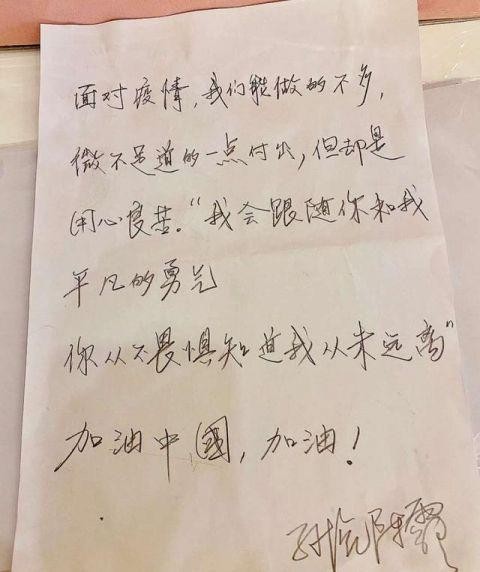 面对疫情，我们能做的不多，
微不足道的一点付出，但却是
用心良苦。“我会跟随你和我
平凡的勇气
你从不畏惧知道我从未远离”
加油中國，加油！